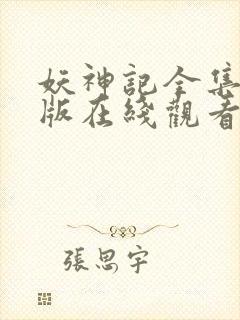 妖神記全集
版在綫觀看
張思宇